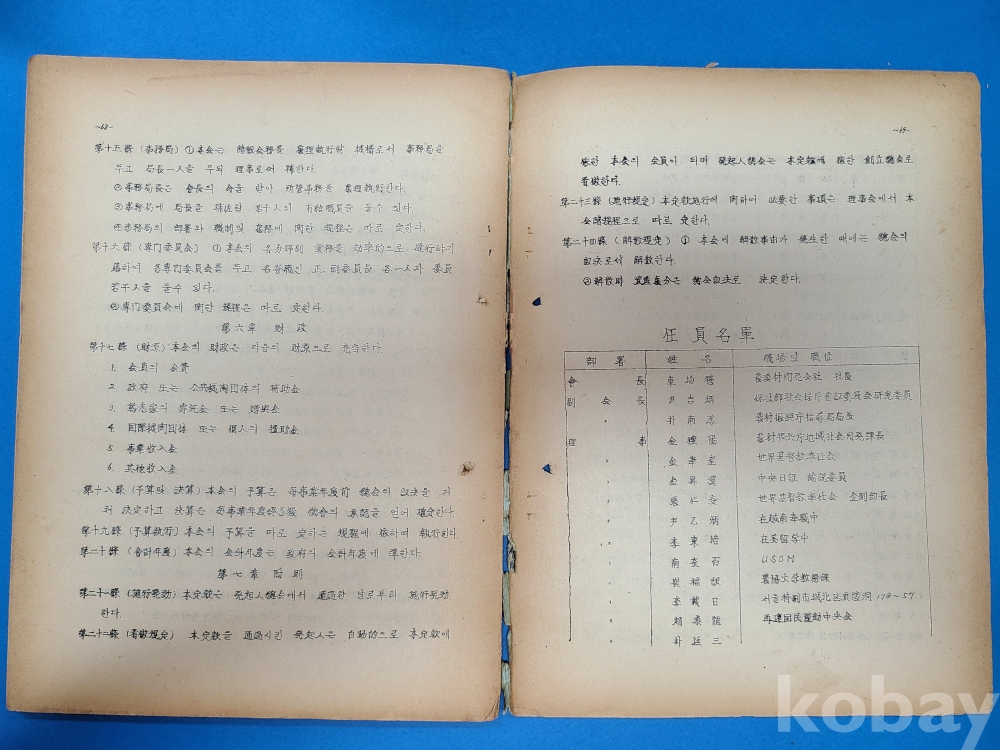 -68-
第十五條 (事務局) ①本会는 諸般会務를 處理執行할 機構로서 事務局을
두고 局長一人을 두되 理事로써 補한다.
②事務局長은 會長의 命을 받아 所管事務를 處理執行한다.
③事務局에 局長을 補佐할 若干人의 有給職員을 둘수 있다.
④事務局의 部署와 職制및 處務에 関한 規程은 따로 定한다.
第十六條 (専門委員会) ①本会의 各分野別 業務를 効率的으로 遂行하기
為하여 各専門委員会를 두고 名誉職인 正.副委員長 各一人과 委員
若干人을 둘수 있다.
②専門委員会에 関한 規程은 따로 定한다.
第六章 財政
第十七條 (財源) 本会의 財政은 다음의 財源으로 充当한다.
1. 会員의 会費
2. 政府 또는 公共機関団体의 補助金
3. 篤志家의 寄附金 또는 贈与金
4. 国際機関団体 또는 個人의 援助金
5. 事業收入金
6. 其他收入金
第十八條 (予算및 決算) 本会의 予算은 每事業年度前 総会의 議決을 거
처 決定하고 決算은 每事業年度 総会의 承認을 얻어 確定한다
第十九條 (予算執行) 本会의 予算을 따로 定하는 規程에 依하여 執行한다.
第二十條 (会計年度) 本会의 会計年度는 政府의 会計年度에 準한다.
第七章 附則
第二十一條 (施行発効) 本定款은 発起人総会에서 通過한 날로부터 施行한
한다.
第二十二條 (看做規定) 本定款을 通過시킨 発起人은 自動的으로 本定款에
-69-
依한 本会의 会員이 되며 発起人総会는 本定款에 依한 創立総会로
看做한다.
第二十三條 (施行規定) 本定款施行에 関하여 必要한 事項은 理事会에서 本
会諸規程으로 따로 定한다.
第二十四條 (解散規定) ① 本会에 解散事由가 発生한 때에는 総会의
議決로서 解散한다.
②解散時 資産處分은 総会議決로 決定한다.
任員名單
部署 姓名 職場및 職位
會長 車均禧 農漁村開発公社 社長
副会長 尹吉炳 保社部社会保障審議委員会研究委員
朴南 農村振興庁指導局局長
理事 金 陽 農村振興庁地域社会開発課長
〃 金 世界基督教奉仕会
〃 金昇漢 中央日報 論説委員
〃 裵仁 世界基督教奉仕会 企劃部長
〃 尹乙炳 在越南奉職中
〃 李東培 在美留学中
〃 南奎百 USOM
〃 崔福 農協大学教務課
〃 李載日 서울特別市城北区貞陵洞 178-57
〃 趙 龍 再建国民運動中央会
〃 朴廷三
kobay